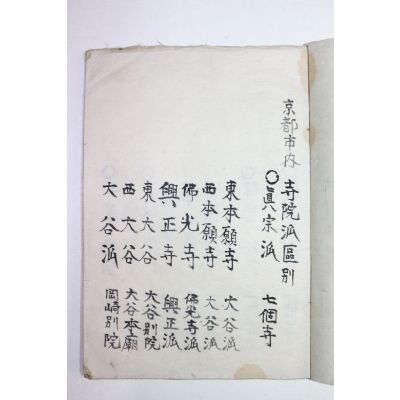 京都市内 寺院派區別
〇眞宗派 七個寺
東本願寺 大谷派
西本願寺 大谷派
佛光寺 佛光寺派
興正寺 興正派
東大谷 大谷別院
西大谷 大谷本廟
大谷派 岡崎別院